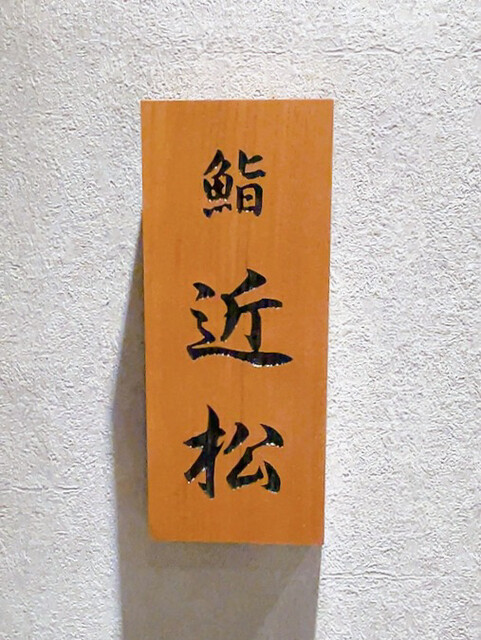 鮨
近松